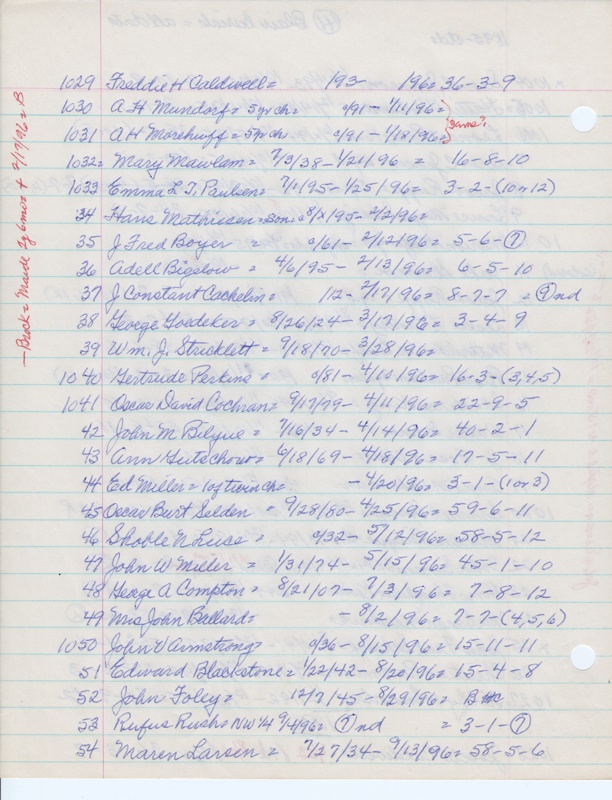 1029 Freddie H Caldwell = /93 - /96 = 36-3-9
1030 A H Mundorf = 5 yr ch = c/91 - 1/11/96 =
1031 A H Morehuff = 5 yr ch c/91 - 1/18/96 = } same?
1032 Mary Mewlam = 7/3/38 - 1/21/96 = 16-8-10
1033 Emma L. T. Paulsen = 7/1/95 - 1/25/96 = 3-2-(10 or 12)
34 Hans Mathiesen = son = 8/1/95 - 2/2/96 =
35 J Fred Boyer = c/61 - 2/12/96 = 5-6-(?)
36 Adell Bigelow = 4/6/95 - 2/13/96 = 6-5-10
37 J Constant Cachelin = 12 - 2/17/96 = 8-7-7 = (?) nd
38 George Goedeker = 8/26/24 - 3/17/96 = 3-4-9
39 Wm. J. Stricklett = 9/18/70 - 3/28/96 =
1040 Gertrude Perkins = c/81 - 4/10/96 = 16-3-(3,4,5)
1041 Oscar David Cochran = 9/17/79 - 4/11/96 = 22-9-5
42 John M Bilyue = 7/16/34 - 4/14/96 = 40-2-1
43 Ann Gutschow = 6/18/69 - 4/18/96 = 17-5-11
44 Ed Miller = 1 of twin ch = - 4/20/96 = 3-1-(1 or 3)
45 Oscar Burt Selden = 9/28/80 - 4/25/96 = 59-6-11
46 Shoble N Luse = c/32 - 5/12/96 = 58-5-12
47 John W Miller = 1/31/74 - 5/15/96 = 45-1-10
48 George A Compton = 8/21/07 - 7/3/96 = 7-8-12
49 Mrs John Ballard = - 8/2/96 = 7-7-(4,5,6)
1050 John V Armstrong = c/36 - 8/15/96 = 15-11-11
51 Edward Blackstone = 1/22/42 - 8/20/96 = 15-4-8
52 John Foley = 12/7/45 - 8/29/96 = B
53 Rufus Rush = NW 1/4 9/4/96 = (?) nd = 3-1-(?)
54 Maren Larsen = 7/27/34 - 9/13/96 = 58-5-6
- Back = Maude 2 y 6 m + 2/17/96 = B